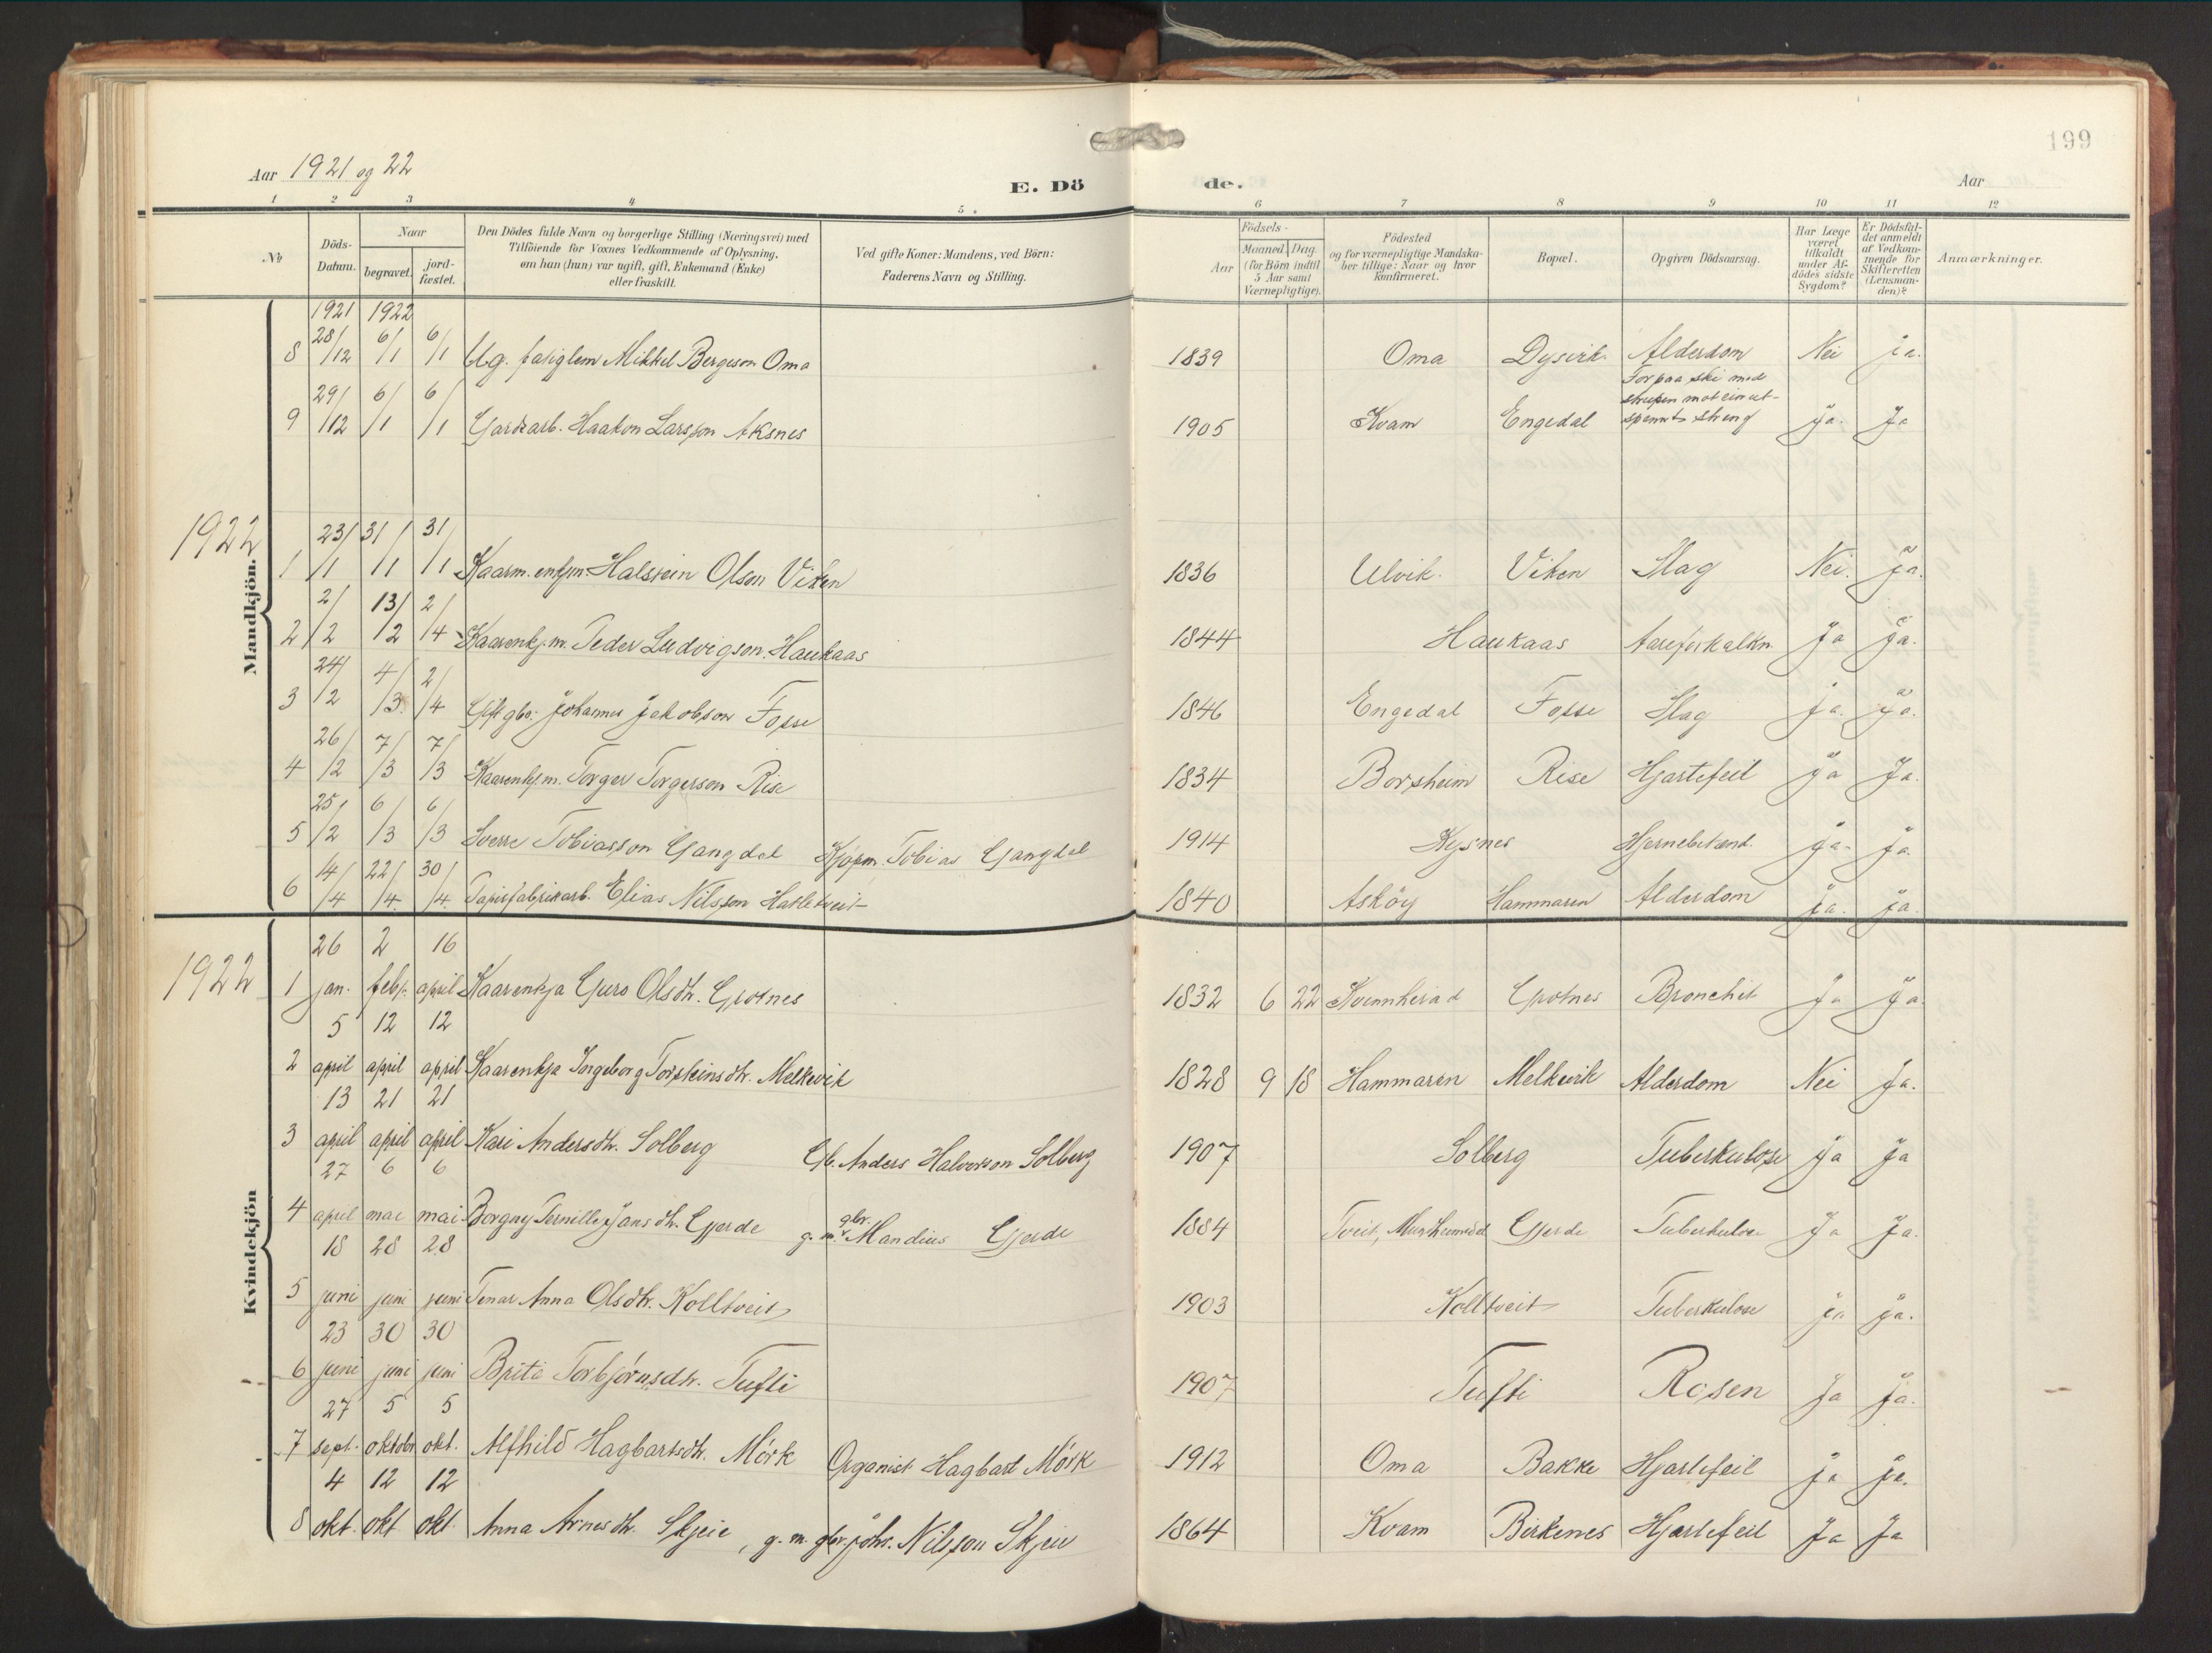 199
Aar 1921 og 22
E. Dö de.
Aar
1 2 3 4 5 6 7 8 9 10 11 12
№
Döds-Datum.
Naar
begravet.
jord-fæstet.
Den Dödes fulde Navn og borgerlige Stilling (Næringsvei) med
Tilföiende for Voxnes Vedkommende af Oplysning,
om han (hun) var ugift, gift, Enkemand (Enke)
eller fraskilt.
Ved gifte Koner: Mandens, ved Börn:
Faderens Navn og Stilling.
Födsels-
Aar
Maaned. Dag
(for Börn indtil
5 Aar samt
Værnepligtige).
Födested
og for værnepligtige Mandska-
ber tillige: Naar og hvor
konfirmeret.
Bopæl.
Opgiven Dödsaarsag.
Har Læge
været
tilkaldt
under Af-
dödes sidste
Sygdom?
Er Dödsfal-
det anmeldt
af Vedkom-
mende for
Skifteretten
(Lensman-
den)?
Anmærkninger.
Mandkjön.
1921 1922
8 28/12 6/1 6/1 Ug. fatiglem Mikkel Bergeson Oma 1839 Oma Dysvik Alderdom Nei ja.
9 29/12 6/1 6/1 Gardsarb. Haakon Larsson Aksnes 1905 Kvam Engedal For paa ski med
strupen mot ein ut-
spennt streng Ja. Ja
1922
1 23/1 31/1 31/1 Kaarm. enkjm. Halstein Olson Viken 1836 Ulvik. Viken Slag Nei. Ja.
2 2/2 13/2 2/4 Kaarenkj.m. Peder Ludvigson Haukaas 1844 Haukaas Aareforkalkn. Ja Ja.
3 24/2 4/3 2/4 Gift gbr. Johannes Jakobson Fosse 1846 Engedal Fosse Slag ja. Ja.
4 26/2 7/3 7/3 Kaarenkj.m. Torger Torgerson Rise 1834 Borsheim Rise Hjartefeil Ja Ja.
5 25/2 6/3 6/3 Sverre Tobiasson Gangdal Kjøpm. Tobias Gangdal 1914 Kysnes Hjernebetænd. Ja. Ja.
6 14/4 22/4. 30/4. Papirfabrikarb. Elias Nilsson Hatletveit 1840 Asköy Hammaren Alderdom Ja. Ja.
Kvindekjön
1922
1 26 jan. 2 febr. 16 april Kaarenkja Guro Olsdtr. Grotnes 1832 6 22 Kvinnherad Grotnes Bronchit Ja Ja.
2 5 april 12 april 12 april Kaarenkja Ingeborg Torsteinsdtr. Melkevik 1828 9 18 Hammaren Melkevik Alderdom Nei Ja.
3 13 april 21 april 21 april Kari Andersdtr. Solberg Gb. Anders Halvorson Solberg 1907 Solberg Tuberkulose Ja Ja
4 27 april 6 mai 6 mai Borgny Pernille Jansdtr. Gjerde g. m. gbr. Mandius Gjerde 1884 Tveit, Gjerde Tuberkulose Ja Ja.
5 18 juni 28 juni 28 juni Tenar Anna Olsdtr. Kolltveit 1903 Kolltveit Tuberkulose Ja Ja.
6 23 juni 30 juni 30 juni Brita Torbjørnsdtr. Tufti 1907 Tufti Rosen Ja Ja.
7 27 sept. 5 oktobr 5 okt. Alfhild Hagbartsdtr. Mörk Organist Hagbart Mörk 1912 Oma Bakke Hjartefeil Ja Ja.
8 4 okt. 12 okt 12 okt. Anna Arnesdtr. Skjeie, g. m. gbr. Johs. Nilsson Skjeie 1864 Kvam Birkenes Hjartefeil Ja Ja